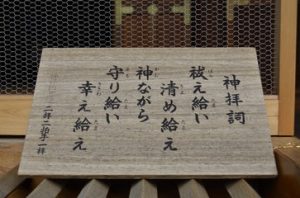 神拝詞
祓え給い
清め給え
神ながら
守り給い
幸え給え
二拝二拍手一拝